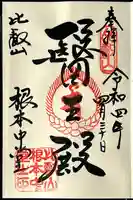 奉拝
令和四年
四月三十日
醫王殿
比叡山
根本中堂